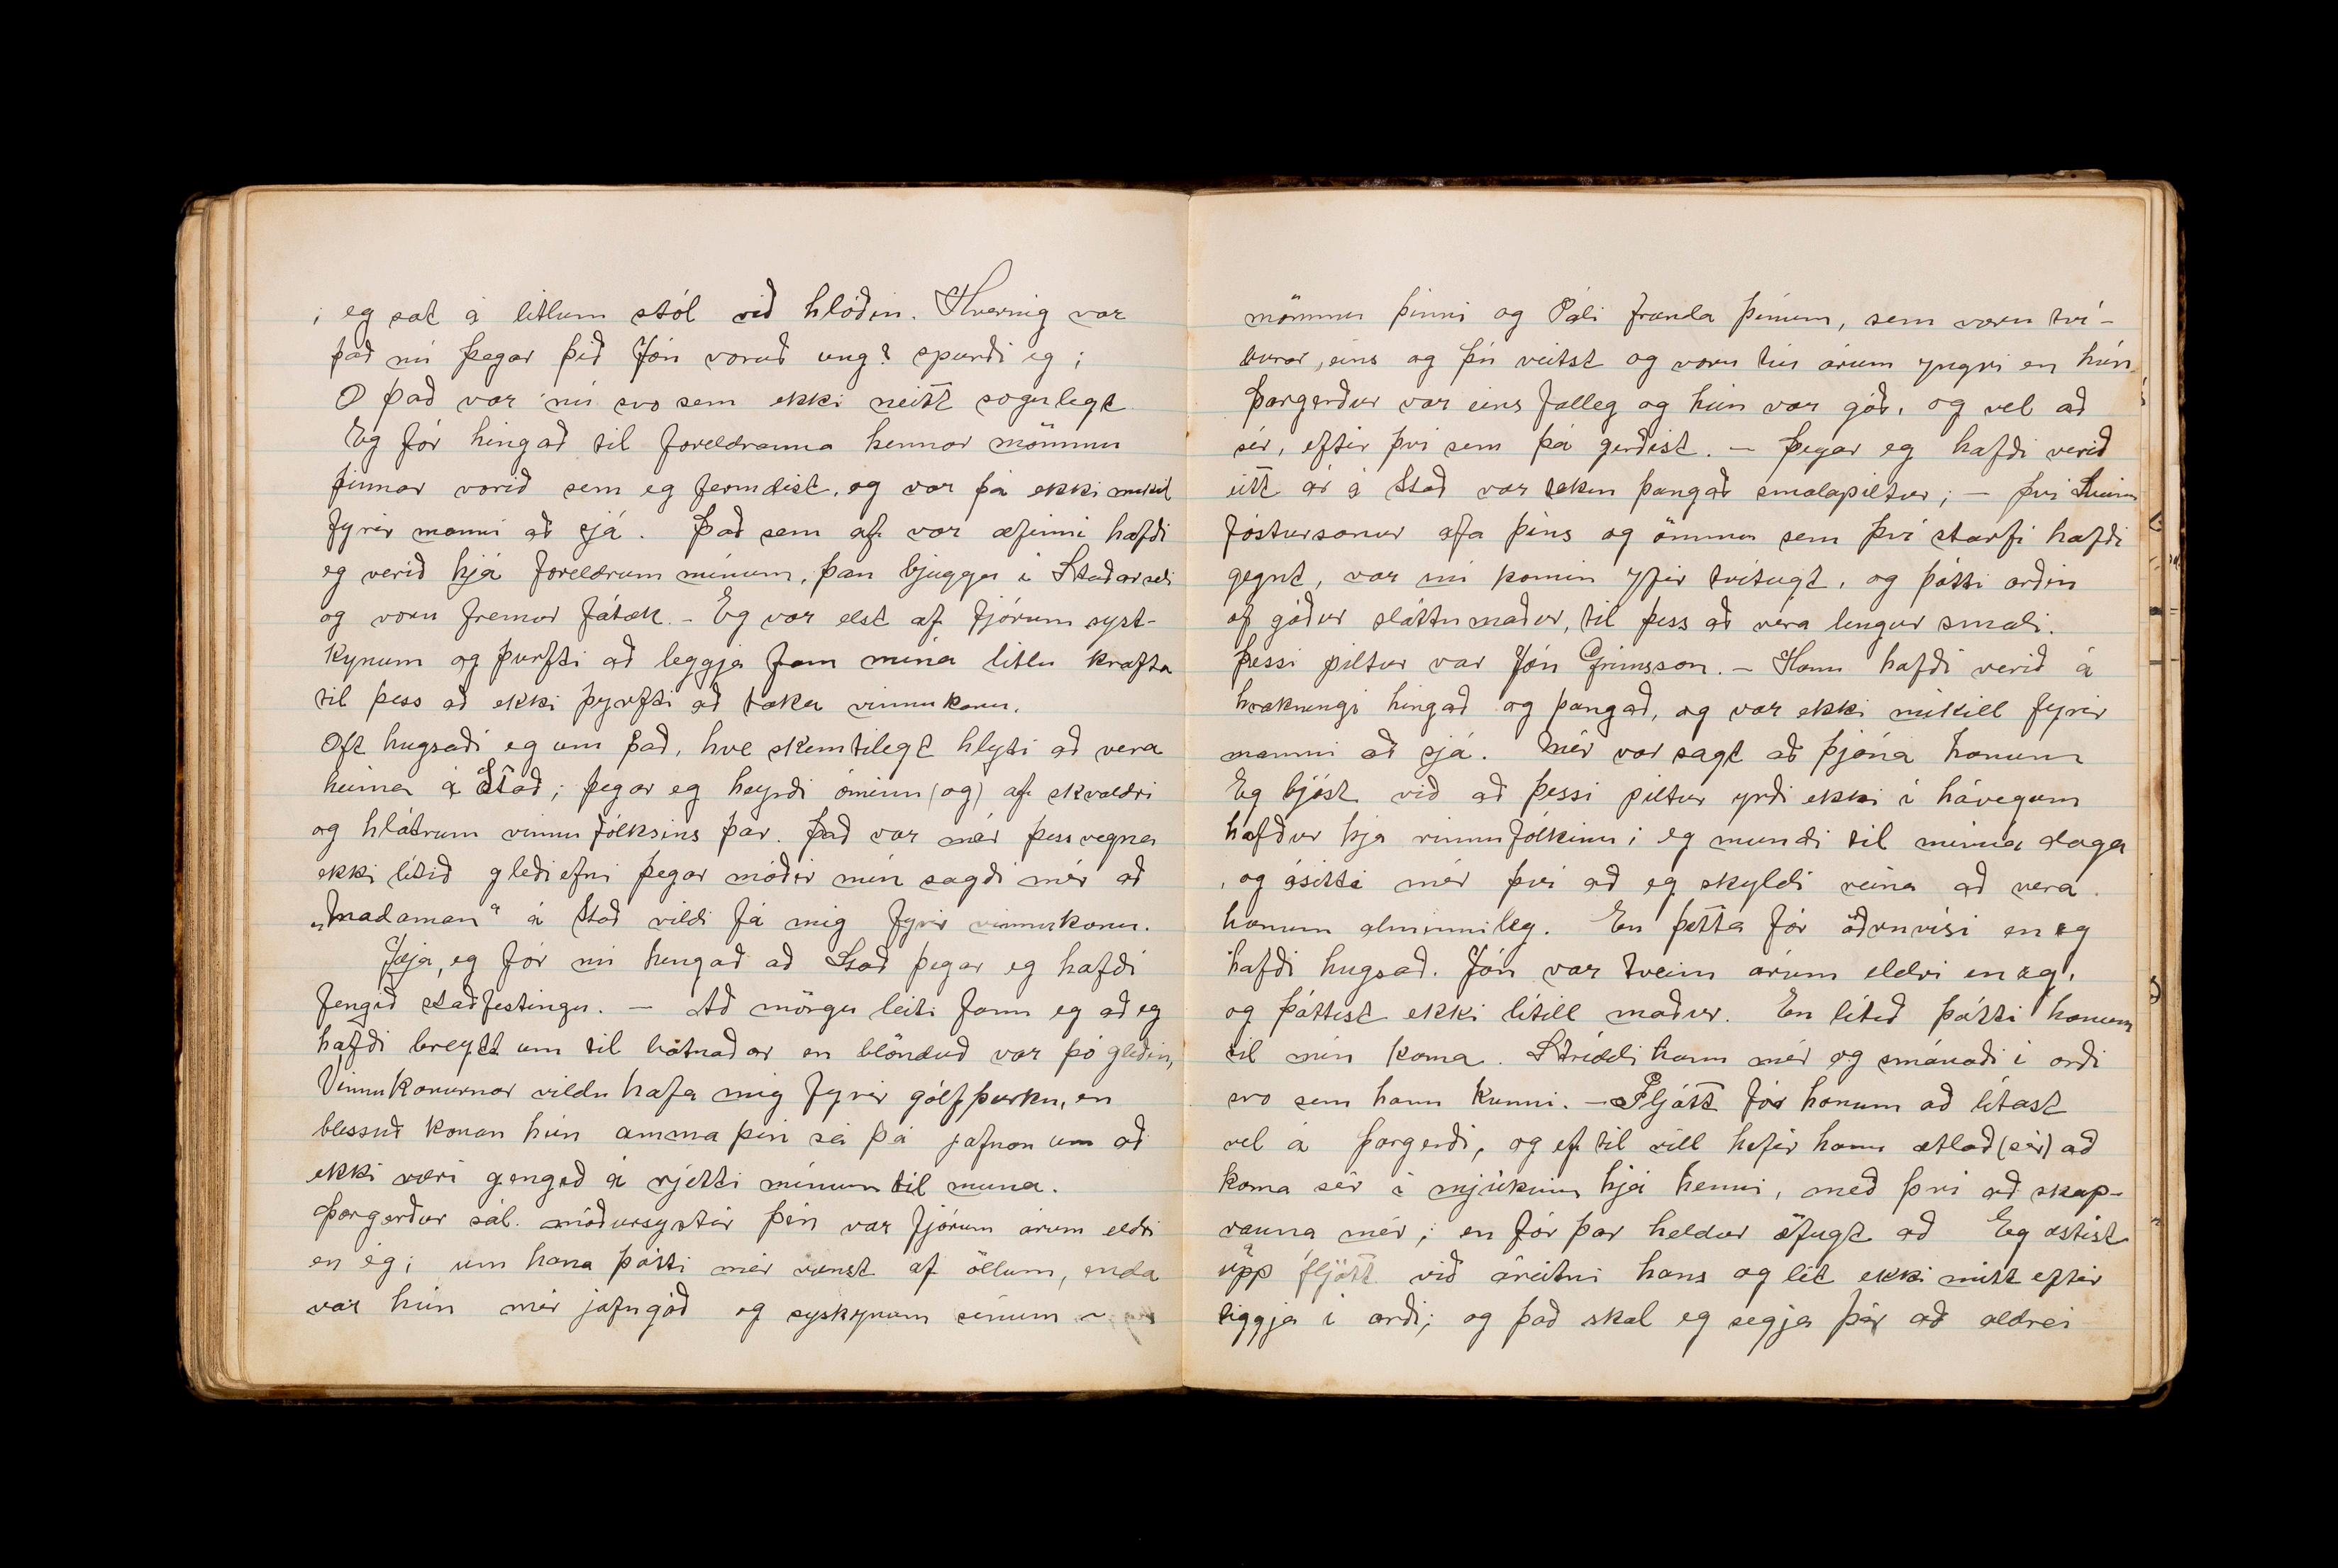 ; eg sat á litlum stól við hlóðin. Hvernig var
það nú þegar þið Jón voruð ung? spurði eg;
O það var nú svo sem ekki neitt sögulegt
Eg fór hingað til foreldranna hennar mömmu
þinnar vorið sem eg fermdist, og var þá ekki mikil
fyrir manni að sjá. Það sem af var æfinni hafði
eg verið hjá foreldrum mínum, þau bjuggu í Staðarseli
og voru fremur fátæk. - Eg var elst af fjórum syst-
kynum og þurfti að leggja fram mína litlu krafta
til þess að ekki þyrfti að taka vinnukonu.
Oft hugsaði eg um það, hve skemtilegt hlyti að vera
heima á Stað; þegar eg heyrði óminn (og) af skvaldri
og hlátrum vinnufólksins þar. Það var mér þess vegna
ekki lítið gleðiefni þegar móðir mín sagði mér að
„madaman" á Stað vildi fá mig fyrir vinnukonu.
Jæja, eg fór nú hingað að Stað þegar eg hafði
fengið staðfestingu. — Að mörgu leiti fann eg að eg
hafði breytt um til batnaðar en blönduð var þó gleðin,
Vinnukonurnar vildu hafa mig fyrir gólfþurku, en
blessuð konan hún amma þín sá þá jafnan um að
ekki væri gengið á rjetti mínum til muna.
Þorgerður sál. móðursystir þín var fjórum árum eldri
en eg; um hana þótti mér vænst af öllum, enda
var hún mér jafngóð og syskynum sínum
mömmu þinni og Páli frænda þínum, sem voru tví-
burar, eins og þú veitst og voru tíu árum yngri en hún.
Þorgerður var eins falleg og hún var góð, og vel að
sér, eftir því sem þá gerðist. — Þegar eg hafði verið
eitt ár á Stað var tekin þangað smalapiltur; — því Sveinn
fóstursonur afa þíns og ömmu sem því starfi hafði
gegnt, var nú komin yfir tvítugt, og þótti orðin
of góður sláttumaður, til þess að vera lengur smali.
Þessi piltur var Jón Grímsson. — Hann hafði verið á
hrakningi hingað og þangað, og var ekki mikill fyrir
manni að sjá. Mér var sagt að þjóna honum
Eg bjóst við að þessi piltur yrði ekki í hávegum
hafður hjá vinnufólkinu; eg mundi til minna daga
, og ásetti mér því að eg skyldi reina að vera
honum almennileg. En þetta fór öðruvísi en eg
hafði hugsað. Jón var tveim árum eldri en eg,
og þóttist ekki lítill maður. En lítið þótti honum
til mín koma. Stríddi hann mér og smánaði í orði
svo sem hann kunni. — Fljótt fór honum að lítast
vel á Þorgerði, og ef til vill hefir hann ætlað (sér) að
koma sér í mjúkinn hjá henni, með því að skap-
rauna mér; en fór þar heldur öfugt að Eg æstist
upp fljótt við áreitni hans og lét ekki mitt eftir
liggja í orði; og það skal eg segja þér að aldrei